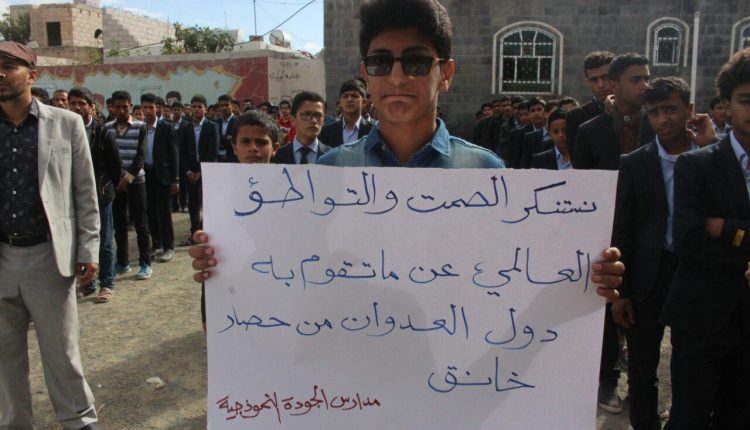 نستنكر الصمت والتواطؤ
العالمي عن ماتقوم به
دول العدوان من حصار
خانق
مدارس الجودة النموذجية